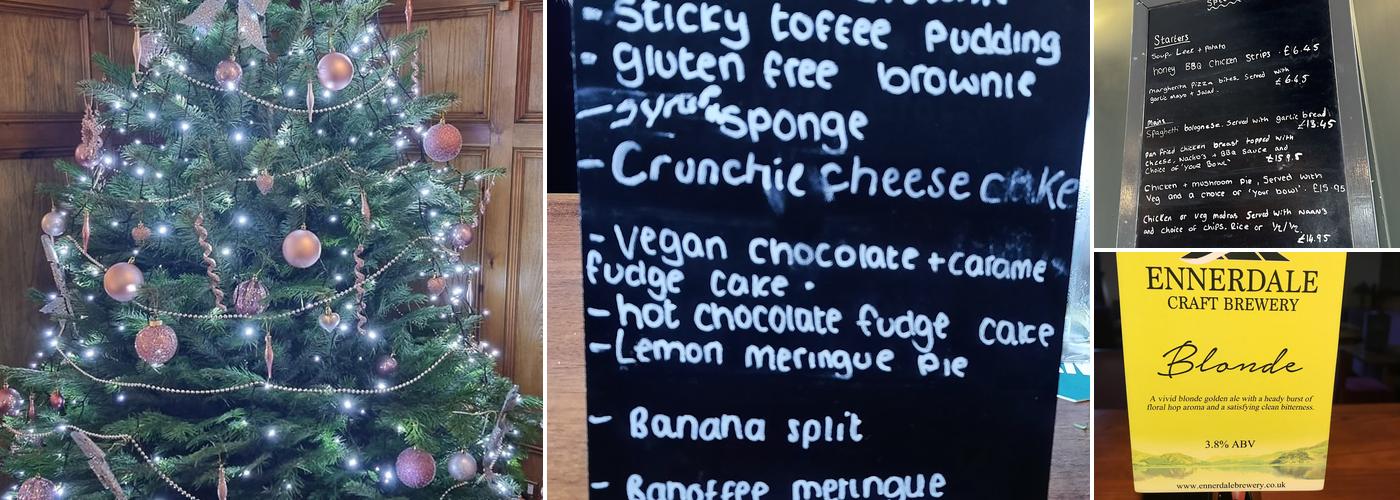 - Sticky toffee Pudding
- gluten free brownie
- syrup sponge
- Crunchie cheese cake
- Vegan chocolate + carame
fudge cake.
- hot chocolate fudge cake
- Lemon meringue Pie
- Banana split
- Banoffee meringue
Starters
Soup - Leek + potato
honey BBQ Chicken Strips . £6.45
margherita Pizza bites. Served with
garlic mayo + Salad . £6.45
Mains
Spaghetti bolognese. Served with garlic bread.
£13.45
Pan fried chicken breast topped with
Cheese, Nacho's + BBQ Sauce and
Choice of 'Your Bowl' £15.95
Chicken + mushroom Pie, Served with
Veg and a choice of 'Your bowl'. £15.95
Chicken or veg madras Served with Naan's
and choice of chips, Rice or ½/½
£14.95
ENNERDALE
CRAFT BREWERY
Blonde
A vivid blonde golden ale with a heady burst of
floral hop aroma and a satisfying clean bitterness.
3.8% ABV
www.ennerdalebrewery.co.uk